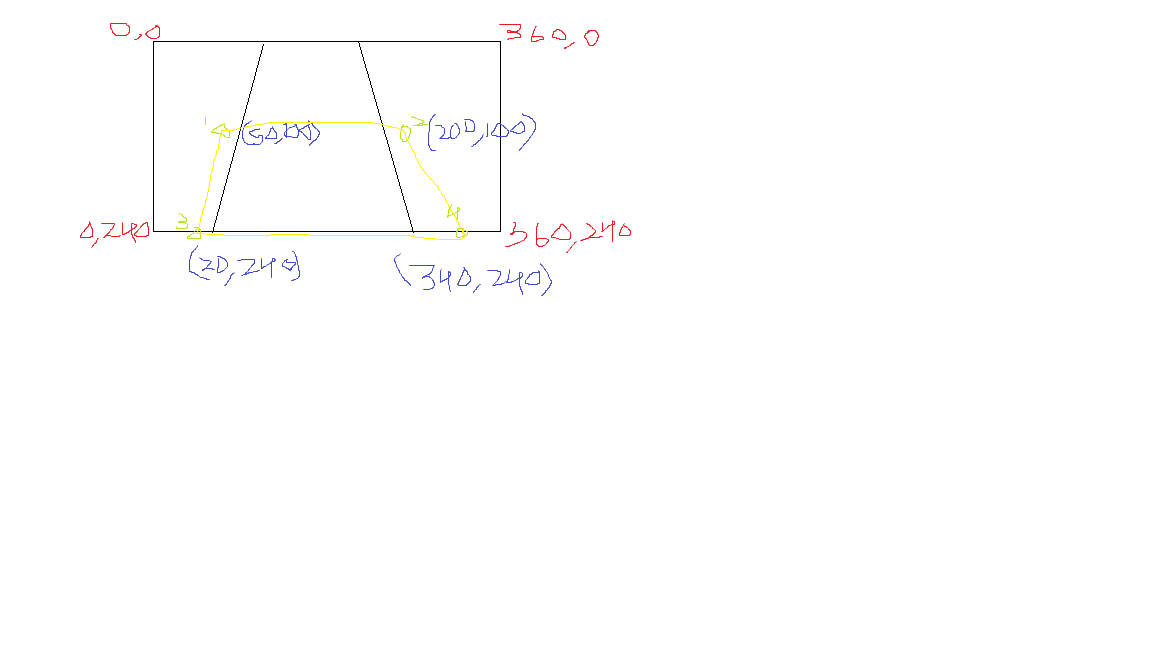 0,0 360,0
1 (50,100) 2 (200,100)
3 4
0,240 360,240
(20,240) (340,240)